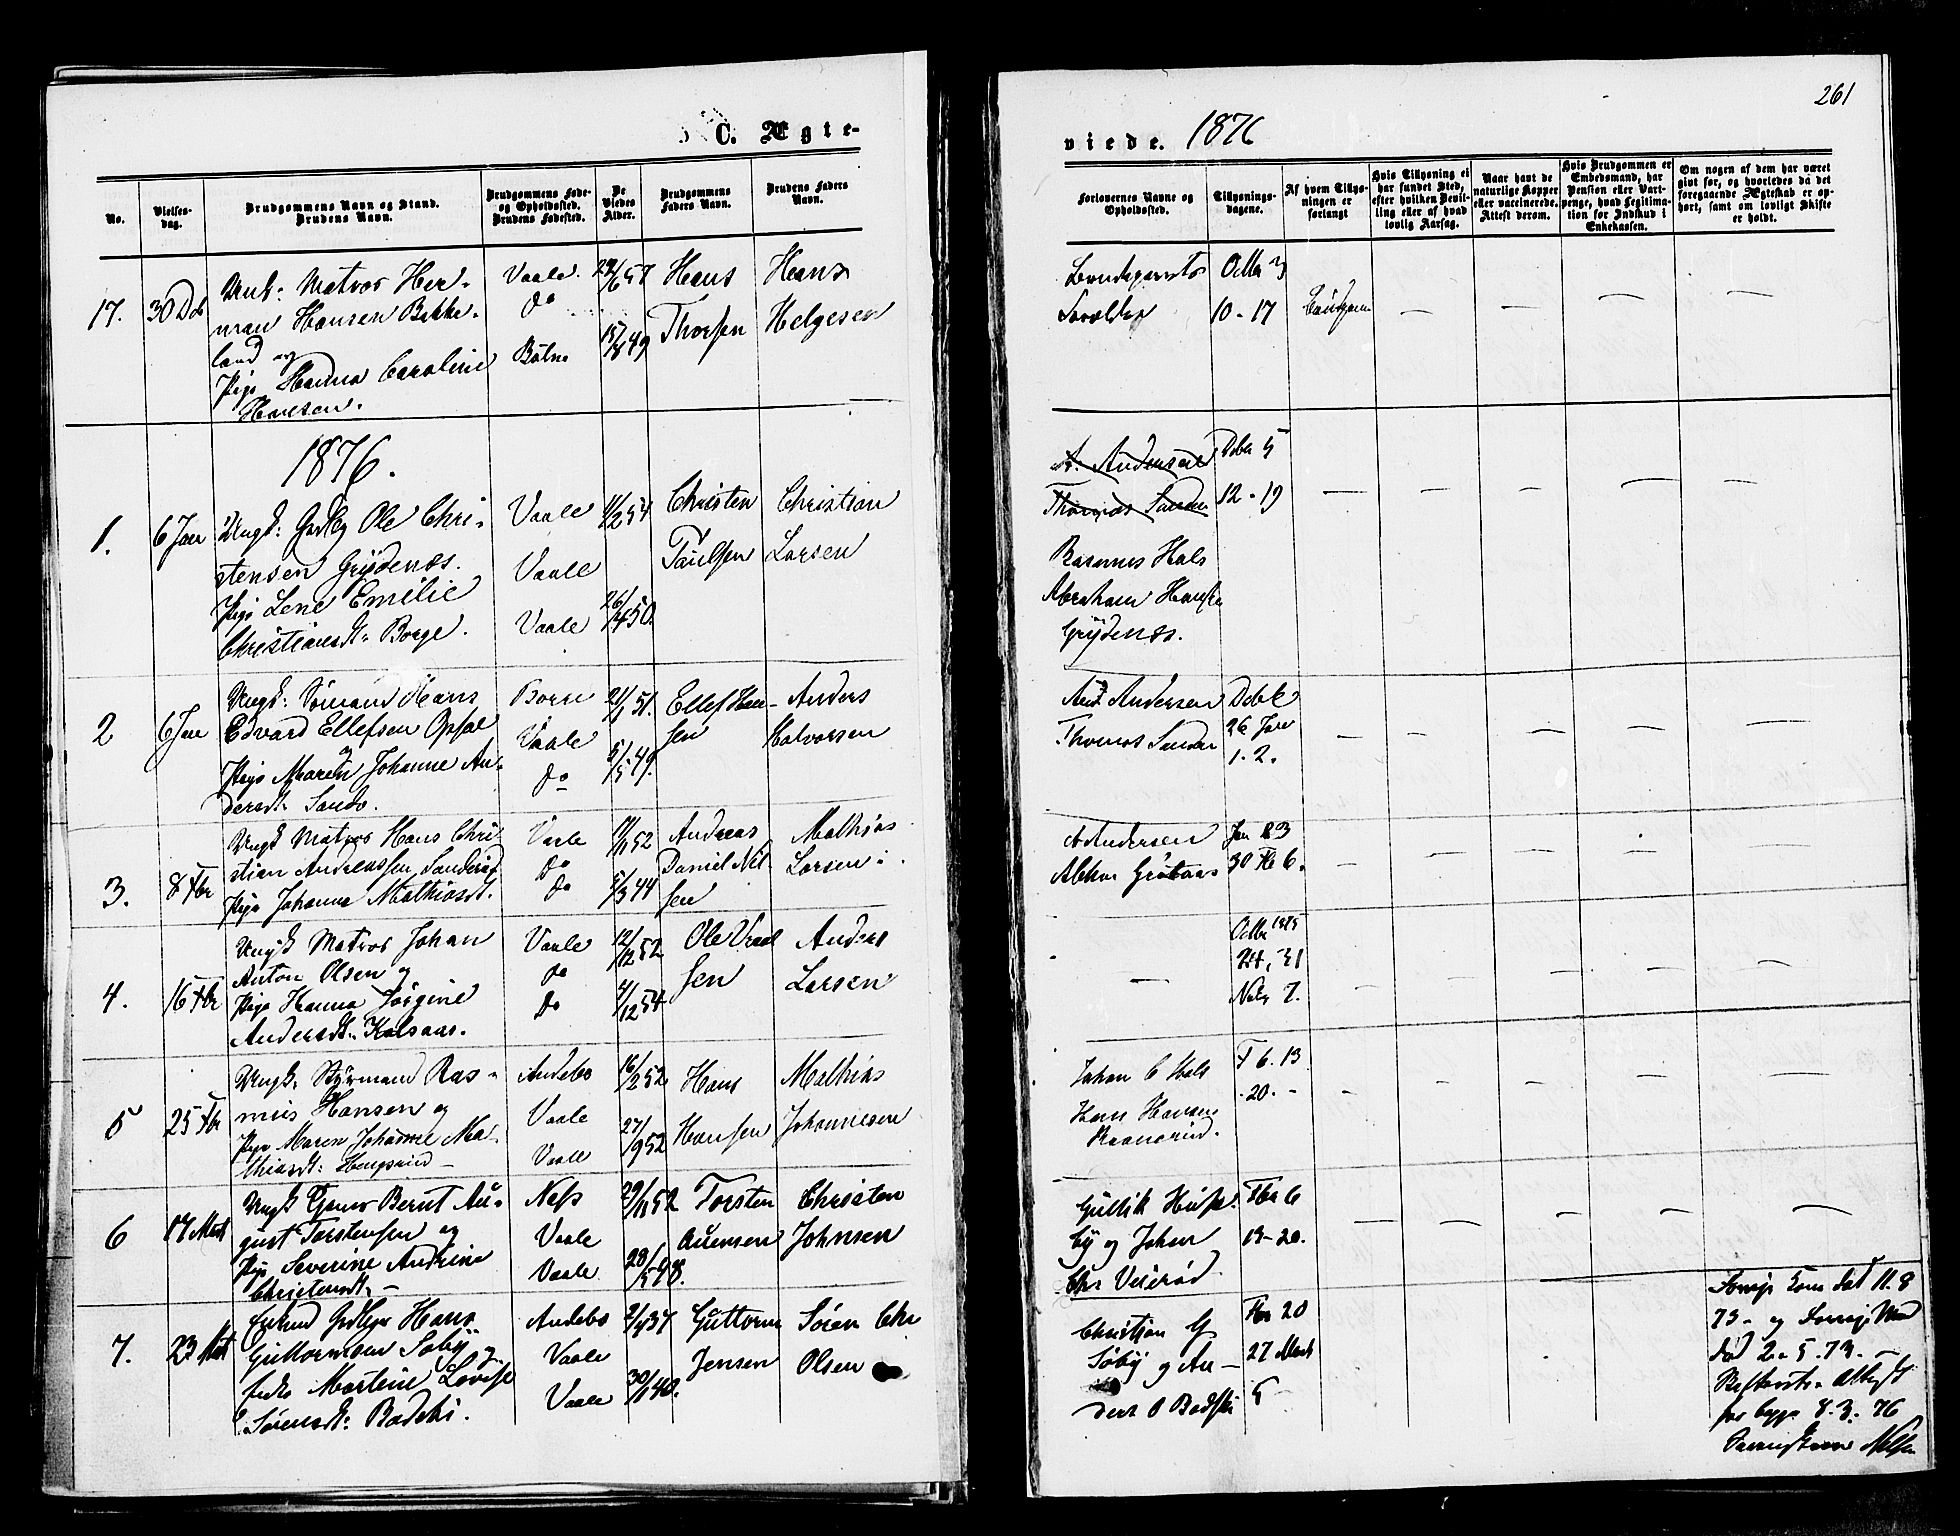 C. Ægte-
No.
Vielses-
dag.
Brudgommens Navn og Stand.
Brudens Navn.
Brudgommens Føde-
og Opholdssted.
Brudens Fødested.
De
Viedes
Alder.
Brudgommens
Faders Navn.
Brudens Faders
Navn.
17. 30 Dcb
Unk: Matros Her-
man Hansen Bekke-
land og
Pige Hanna Caroline
Hansen.
Vaale.
do
Botne
29/6 57
15/8 49
Hans
Thorsen
Hans
Helgesen
1876.
1. 6 Jan
Ungk: Grdbg Ole Chri-
stensen Grydenøs.
Pige Lene Emilie
Christiansdt: Borge.
Vaale
Vaale
Vaale
11/2 54
26/4 50.
Christen
Paulsen
Christian
Larsen
2 6 Jan
Ungk: Sømand Hans
Edvard Ellefsen Opsal
og
Pige Maren Johanne An-
dersdt: Sande.
Borre
Vaale
do
21/1 51.
5/5 49.
Ellef Han-
sen
Anders
Halvorsen
3. 8 Fbr
Ungk Matros Hans Chri
stian Andreassen Sanderød
Pige Johanna Mathiasdt.
Vaale
do
do
11/11 52
5/3 44
Andreas
Daniel Nil
sen
Mathias
Larsen
4. 16 Fbr
Ungk Matros Johan
Anton Olsen og
Pige Hanna Jørgine
Andersdt: Kalsaas.
Vaale
do
do
12/12 52
4/12 54
Ole
sen
Anders
Larsen
5 25 Fbr
Ungk: Styrmand Ras-
mus Hansen og
Pige Maren Johanne Ma-
thiasdt: Hengsrud
Andebo
Vaale
Vaale
16/2 52
27/9 52
Hans
Hansen
Mathias
Johannesen
6 17 Mart
Ungk Bernt Au-
gust Torstensen og
Pige Severine Andrine
Christensdt:
Næs
Vaale
Vaale
29/11 52
28/5 48.
Torsten
Auensen
Christen
Johnsen
7. 23 Mart
Enkmd Hans
Guttormsen Søby og
Enke Martine Lovise
Sørensdt: Badski.
Andebo
Vaale
Vaale
2/4 37
30/1 40.
Guttorm
Jensen
Søren Chr
Olsen
261
viede. 1876
Forlovernes Navne og
Opholdssted.
Tillysnings-
dagene.
Af hvem Tillys-
ningen er
forlangt
Hvis Tillysning ei
har fundet Sted,
efter hvilken Bevil-
ling eller af hvad
lovlig Aarsag.
Naar havt de
naturlige Kopper
eller vaccinerede.
Attest derom.
Hvis Brudgommen er
Embedsmand, har
Pension eller Vart-
penge, hvad Legitima-
tion for Indskud i
Enkekassen.
Om nogen af dem har været
gift før, og hvorledes da det
foregaaende Ægteskab er op-
hørt, samt om lovligt Skifte
er holdt.
Octbr 3
10 - 17
A. Andersen
Thomas Sanden
Rasmus Hals
Abraham Hansen
Grydenøs.
Dcbr 5
12 - 19
And Andersen
Thomas Sanden
Dcbr
26 Jan
1. 2.
A Andersen
Jan 23
30 Fb 6.
Octbr 1875
24, 31
Novbr 7.
Johan C Hals
Hans Hansen
F 6. 13
20.
Gullik
by og Johan
Chr Veierød
Fbr 6
13 - 20.
Christian G
Søby og An-
ders O Badski
Fbr 20
27 Mart
5
død 11. 8
73 - og
død 2. 5. 73.
8. 3. 76
Nilsen